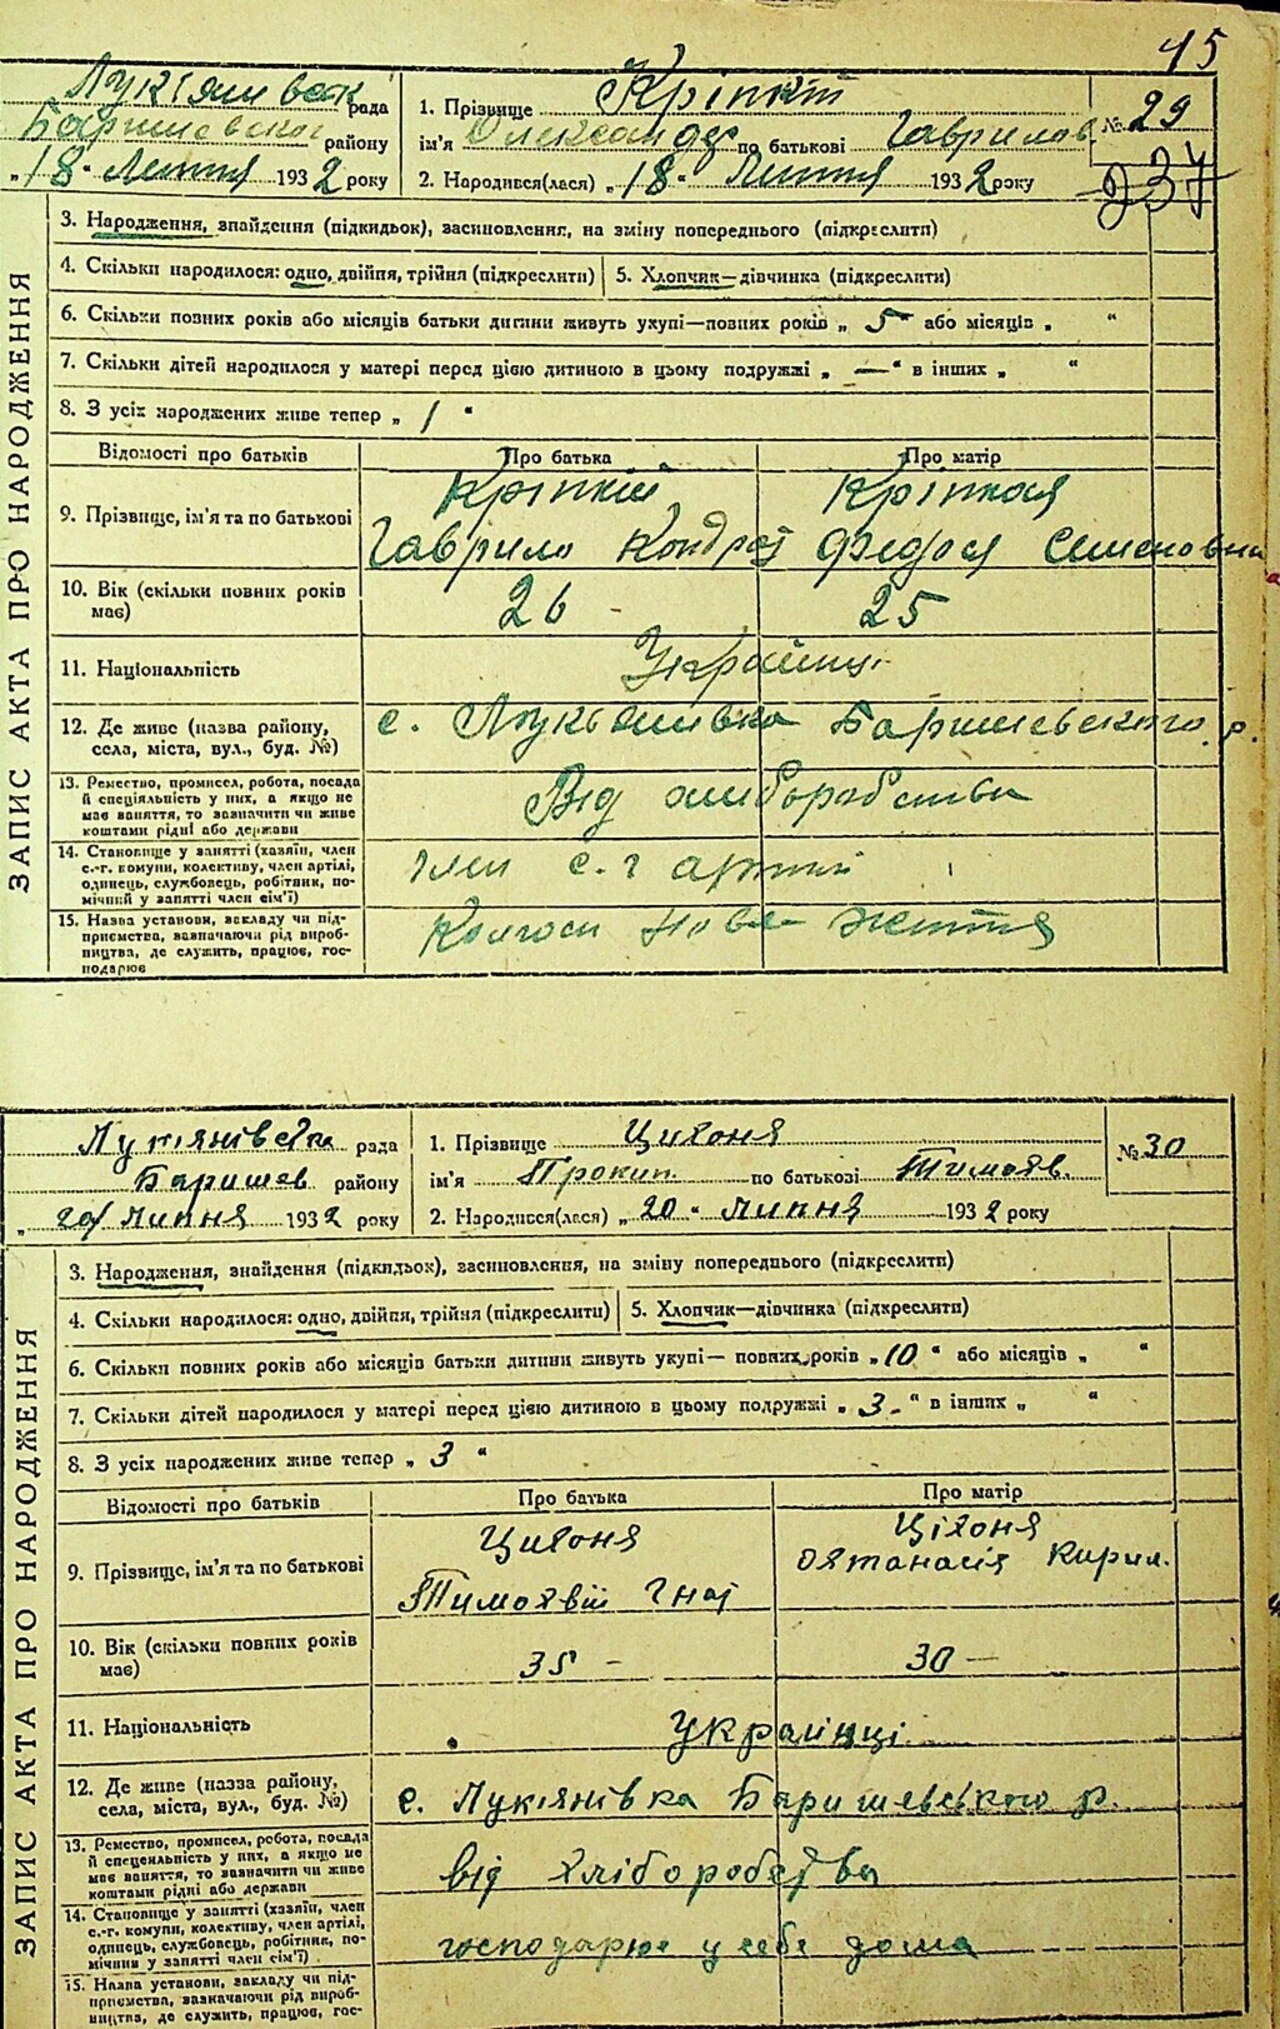 45
Лукіянивськ рада
Баришевского району
„18“ Липня 1932 року
1. Прізвище Кріпкій
ім'я Олександр по батькові Гаврилов.
2. Народився(лася) „18“ Липня 1932 року
№ 29
237
ЗАПИС АКТА ПРО НАРОДЖЕННЯ
3. Народження, знайдення (підкидьок), засиновлення, на зміну попереднього (підкреслити)
4. Скільки народилося: одно, двійня, трійня (підкреслити)
5. Хлопчик—дівчинка (підкреслити)
6. Скільки повних років або місяців батьки дитини живуть укупі—повних років „ 5 “ або місяців „ “
7. Скільки дітей народилося у матері перед цією дитиною в цьому подружжі „ — “ в інших „ “
8. З усіх народжених живе тепер „ 1 “
Відомості про батьків
Про батька
Про матір
9. Прізвище, ім'я та по батькові
Кріпкій
Гаврило Кондрат
Кріпкая
Федося Семеновна
10. Вік (скільки повних років
має)
26 -
25
11. Національність
Українці
12. Де живе (назва району,
села, міста, вул., буд. №)
с. Лукьянивка Баришевского р.
13. Ремество, промисел, робота, посада
й спеціяльність у них, а якщо не
має заняття, то зазначити чи живе
коштами рідні або держави
Від хлиборобства
14. Становище у занятті (хазяїн, член
с.-г. комуни, колективу, член артілі,
одинець, службовець, робітник, по-
мічний у занятті член сім'ї)
член с.г артілі
15. Назва установи, закладу чи під-
приємства, зазначаючи рід вироб-
ництва, де служить, працює, гос-
подарює
Колгосп Нове життя
Лукянівска рада
Баришев району
„20“ Липня 1932 року
1. Прізвище Цихоня
ім'я Прокип по батькові Тимохв.
2. Народився(лася) „20“ липня 1932 року
№ 30
ЗАПИС АКТА ПРО НАРОДЖЕННЯ
3. Народження, знайдення (підкидьок), засиновлення, на зміну попереднього (підкреслити)
4. Скільки народилося: одно, двійня, трійня (підкреслити)
5. Хлопчик—дівчинка (підкреслити)
6. Скільки повних років або місяців батьки дитини живуть укупі— повних років „ 10 “ або місяців „ “
7. Скільки дітей народилося у матері перед цією дитиною в цьому подружжі „ 3 - “ в інших „ “
8. З усіх народжених живе тепер „ 3 “
Відомості про батьків
Про батька
Про матір
9. Прізвище, ім'я та по батькові
Цихоня
Тимохвій Гнат
Ціхоня
Кирил.
10. Вік (скільки повних років
має)
35 -
30 —
11. Національність
українці
12. Де живе (назва району,
села, міста, вул., буд. №)
с. Лукянівка Баришевського р.
13. Ремество, промисел, робота, посада
й спеціяльність у них, а якщо не
має заняття, то зазначити чи живе
коштами рідні або держави
від хліборобства
14. Становище у занятті (хазяїн, член
с.-г. комуни, колективу, член артілі,
одинець, службовець, робітник, по-
мічний у занятті член сім'ї)
господарює у себе дома
15. Назва установи, закладу чи під-
приємства, зазначаючи рід вироб-
ництва, де служить, працює, гос-